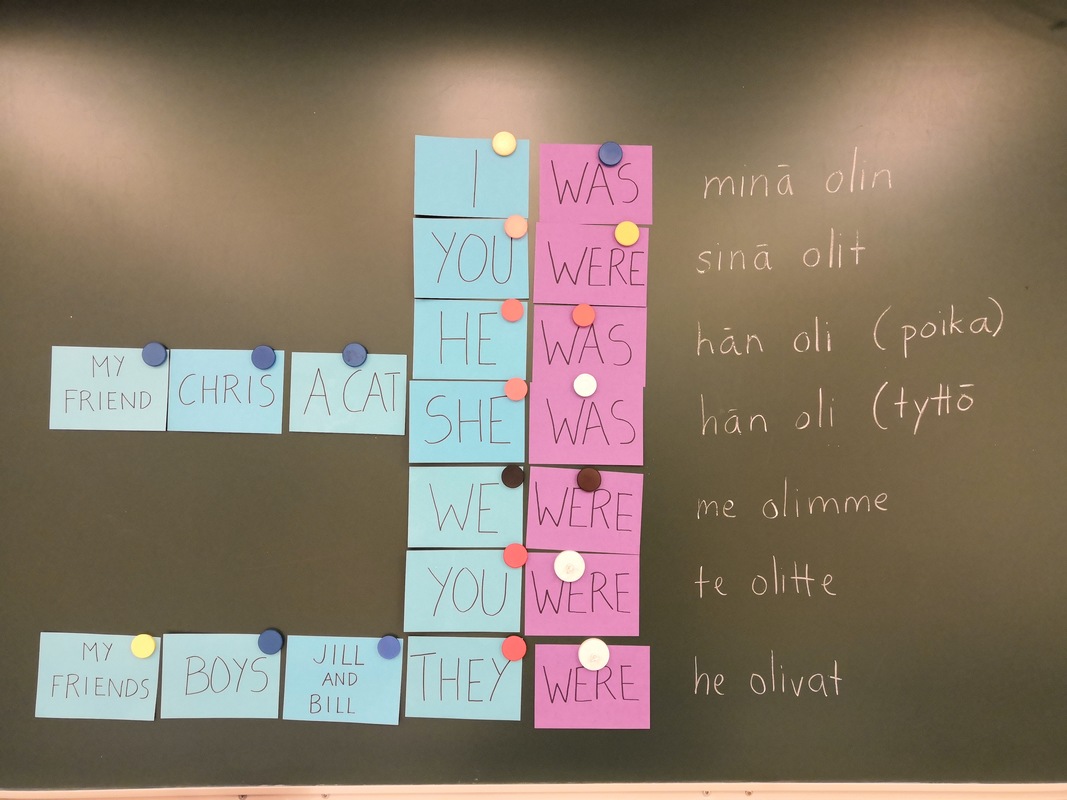 I WAS minä olin
YOU WERE sinä olit
HE WAS hän oli (poika)
MY
FRIEND
CHRIS
A CAT
SHE WAS hän oli (tyttö
WE WERE me olimme
YOU WERE te olitte
MY
FRIENDS
BOYS
JILL
AND
BILL
THEY WERE he olivat